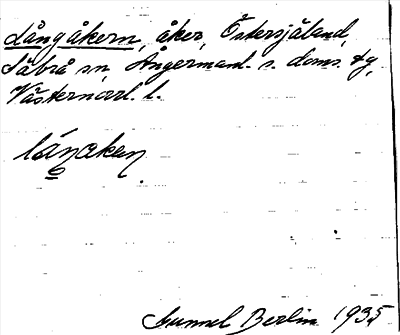 Långåkern, åker, Östersjåland,
Säbrå sn, Ångermanl. s. doms. tg,
Västernorrl. l.
Gunnel Berlin 1935